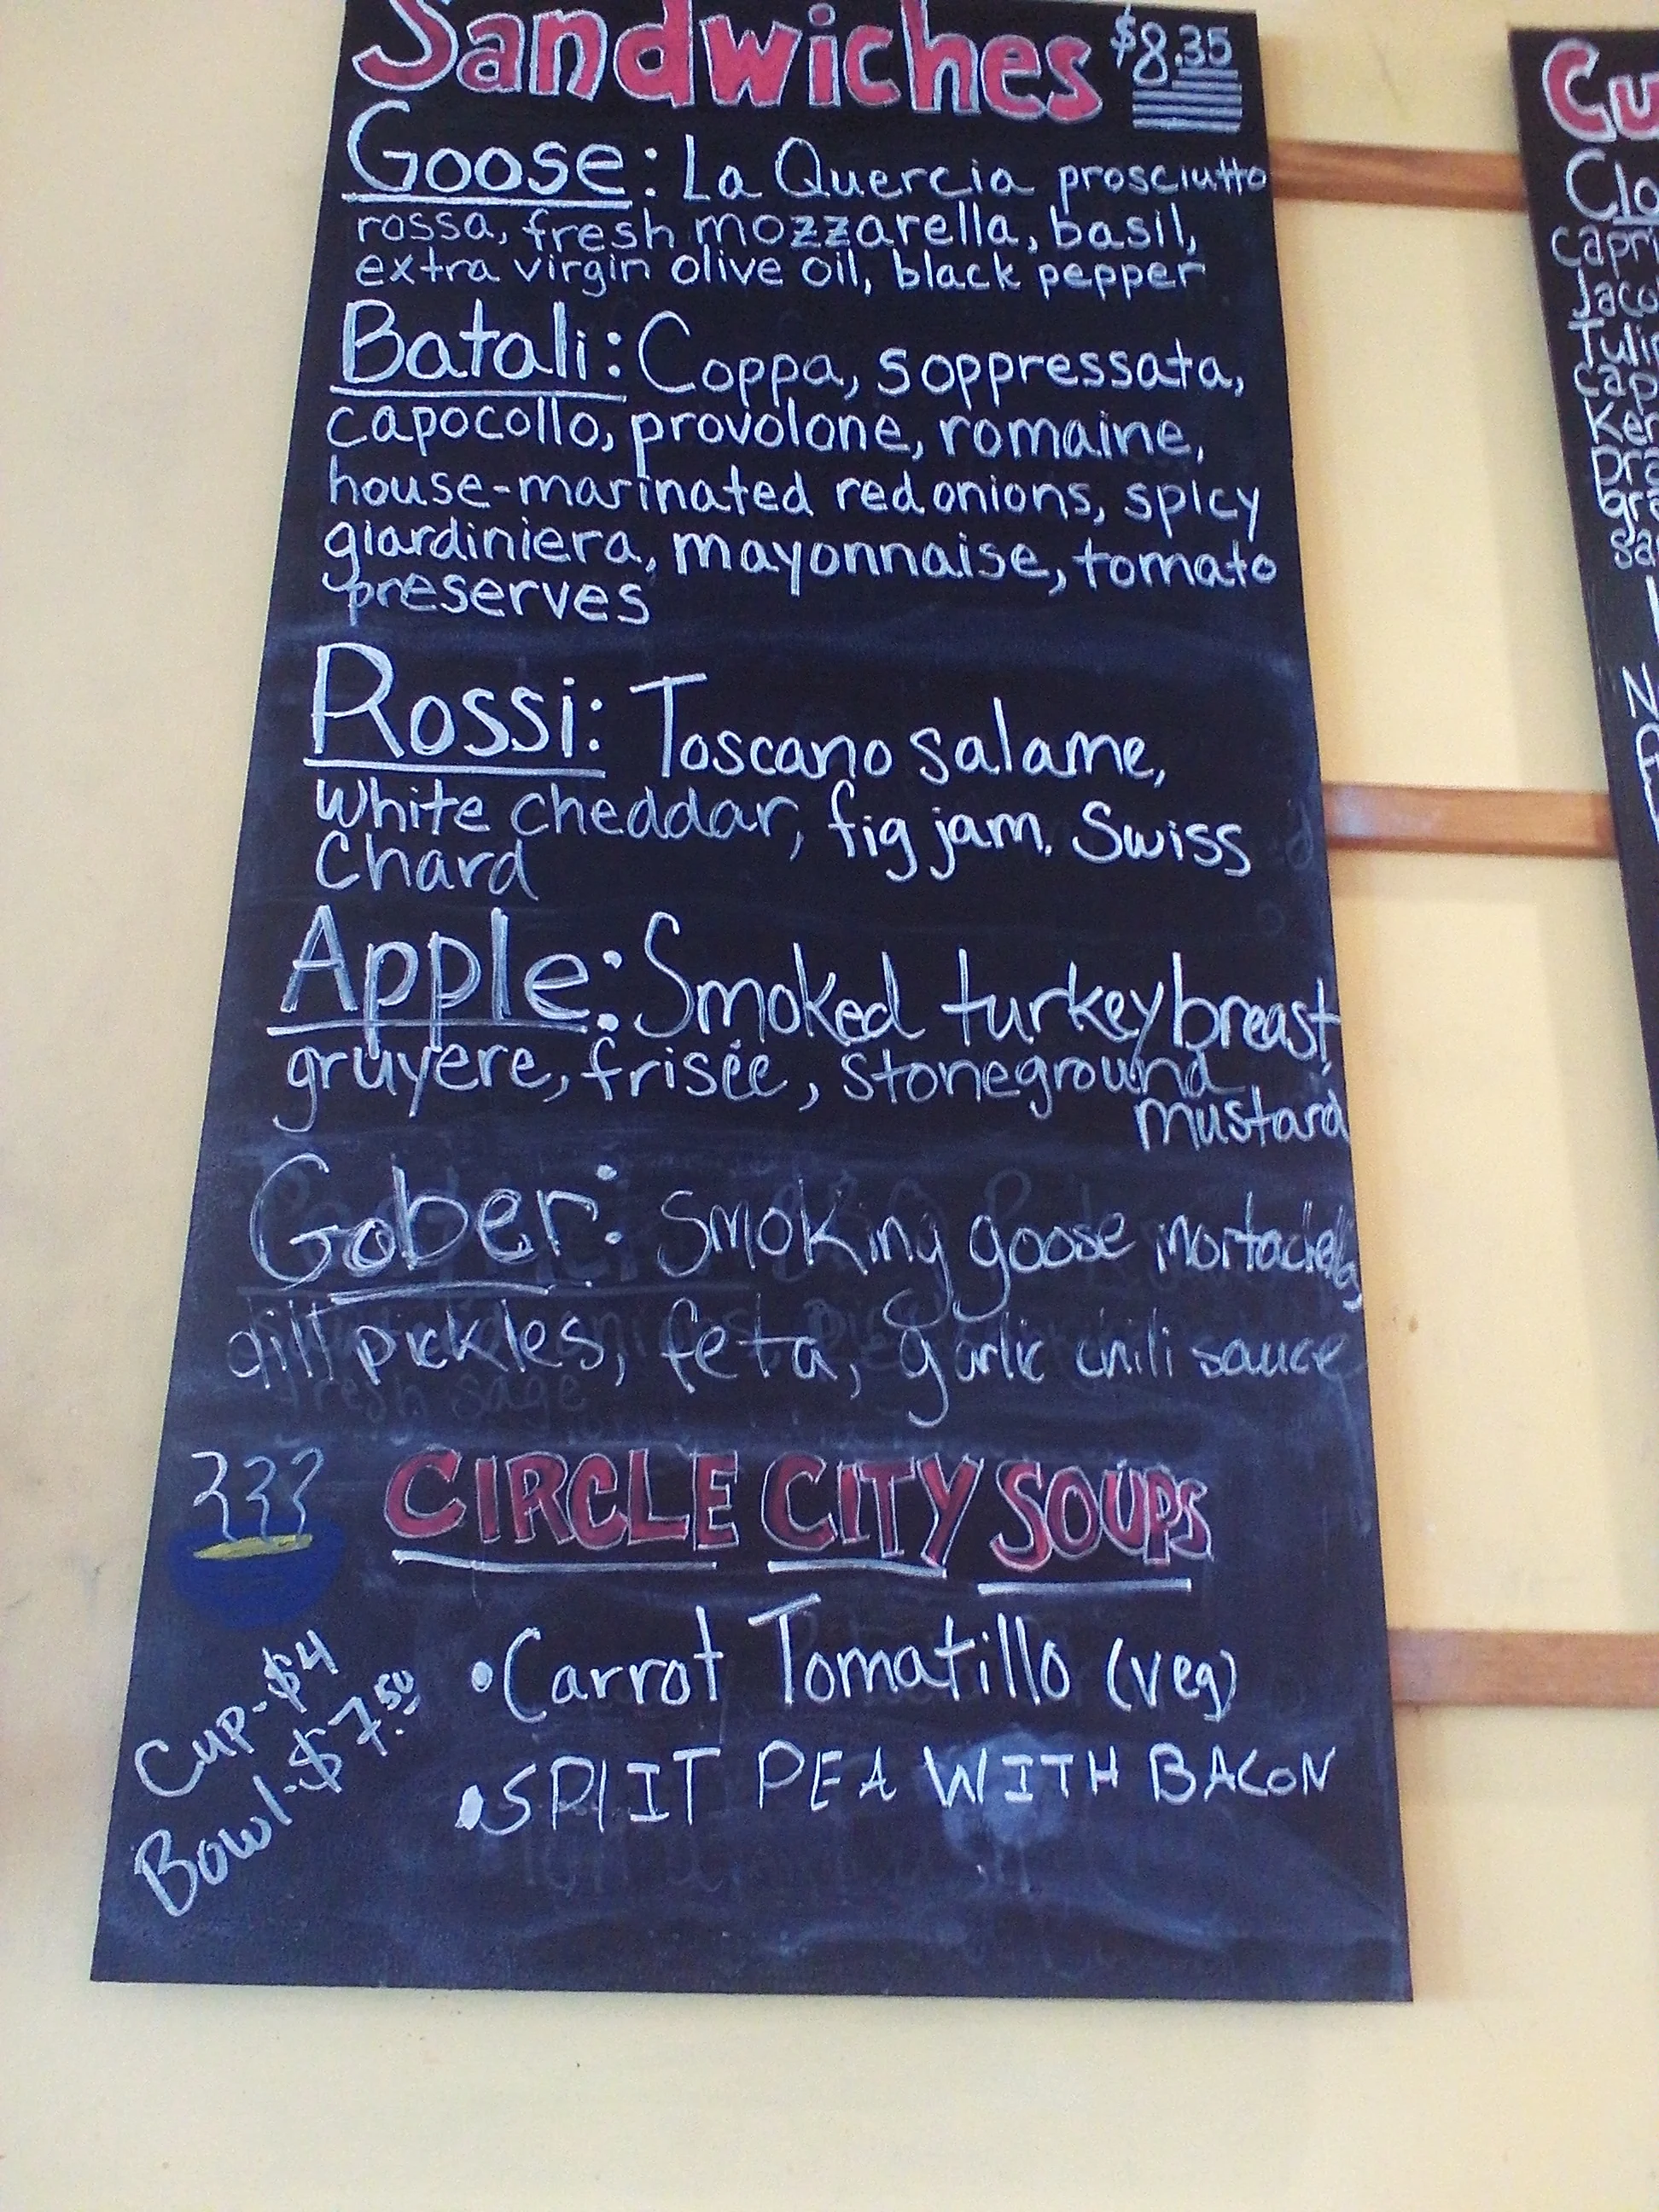 Sandwiches $8.35
Goose: La Quercia prosciutto
rossa, fresh mozzarella, basil,
extra virgin olive oil, black pepper
Batali: Coppa, soppressata,
capocollo, provolone, romaine,
house-marinated red onions, spicy
giardiniera, mayonnaise, tomato
preserves
Rossi: Toscano salame,
white cheddar, fig jam. Swiss
Chard
Apple: Smoked turkey breast,
gruyere, frisée, stoneground
mustard
Gober: Smoking goose
dill pickles, feta, garlic chili sauce
fresh sage
CIRCLE CITY SOUPS
Cup-$4
Bowl-$7.50
•Carrot Tomatillo (veg)
•SPLIT PEA WITH BACON
Cu
Clo
capri
Jaco
Tulip
cap
Ker